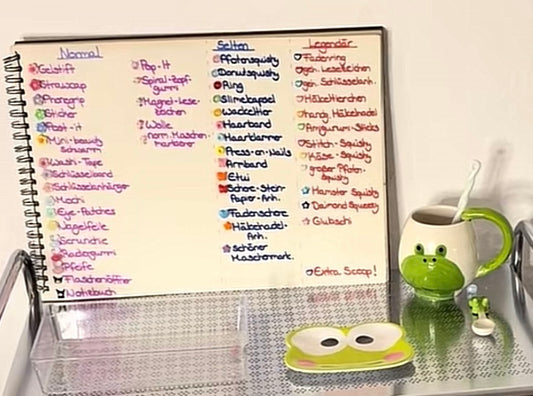 Normal
Gelstift
Strawcap
Phonegrip
Sticker
Post-it
Mini-beauty
schwamm
Washi-Tape
Schlüsselband
Schlüsselanhänger
Mochi
Eye-Patches
Nagelfeile
Scrunchie
Radiergummi
Pfeife
Flaschenöffner
Notizbuch
Pop-It
Spiral-Zopf-
gummi
Magnet-Lese-
zeichen
Wolle
norm. Maschen-
markierer
Selten
Pfotensquishy
Donutsquishy
Ring
Slimekapsel
Wackeltier
Haarband
Haarklammer
Press-on-Nails
Armband
Etui
Schere-Stein-
Papier-Anh.
Fadenschere
Häkelnadel-
Anh.
schöner
Maschenmark.
Legendär
Fadenring
geh. Lesezeichen
geh. Schlüsselanh.
Häkeltierchen
handg. Häkelnadel
Amigurumi-Sticks
Stitch-Squishy
Käse-Squishy
großer Pfoten-
squishy
Hamster Squishy
Daimond Squeezy
Glubschi
Extra Scoop!